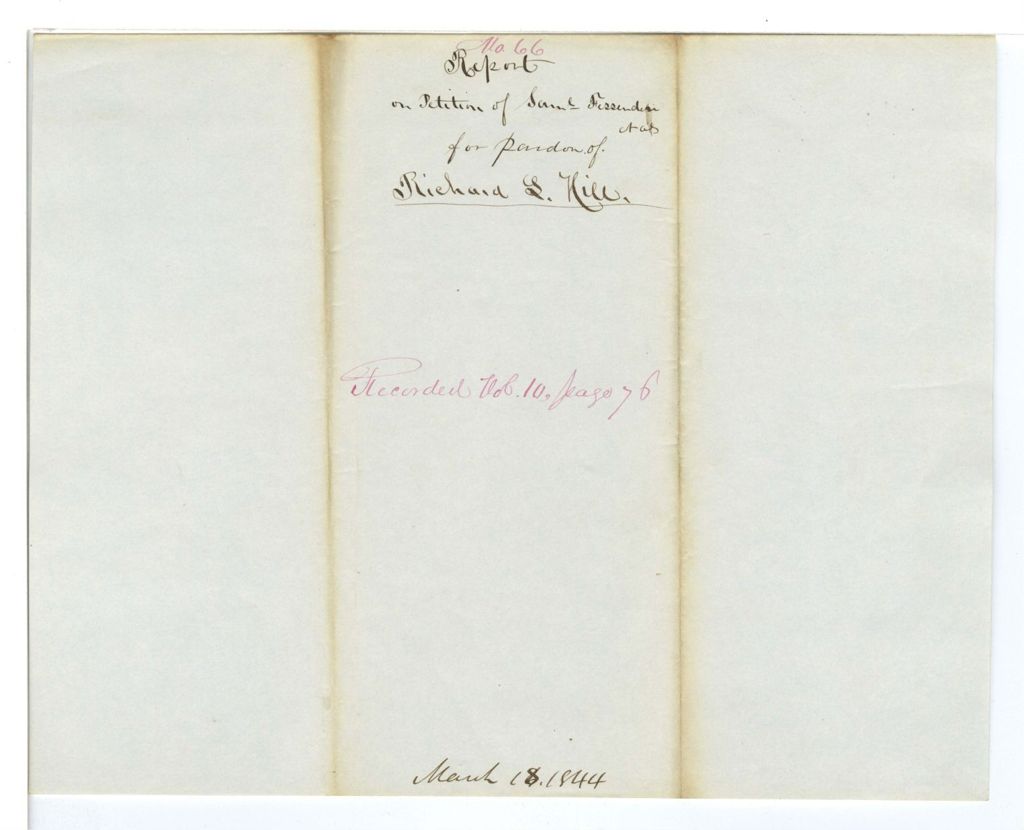 No 66
Report
on Petition of Saml Fessenden
et als
for pardon of
Richard L. Hill.
Recorded Vol. 10. page 76
March 18. 1844